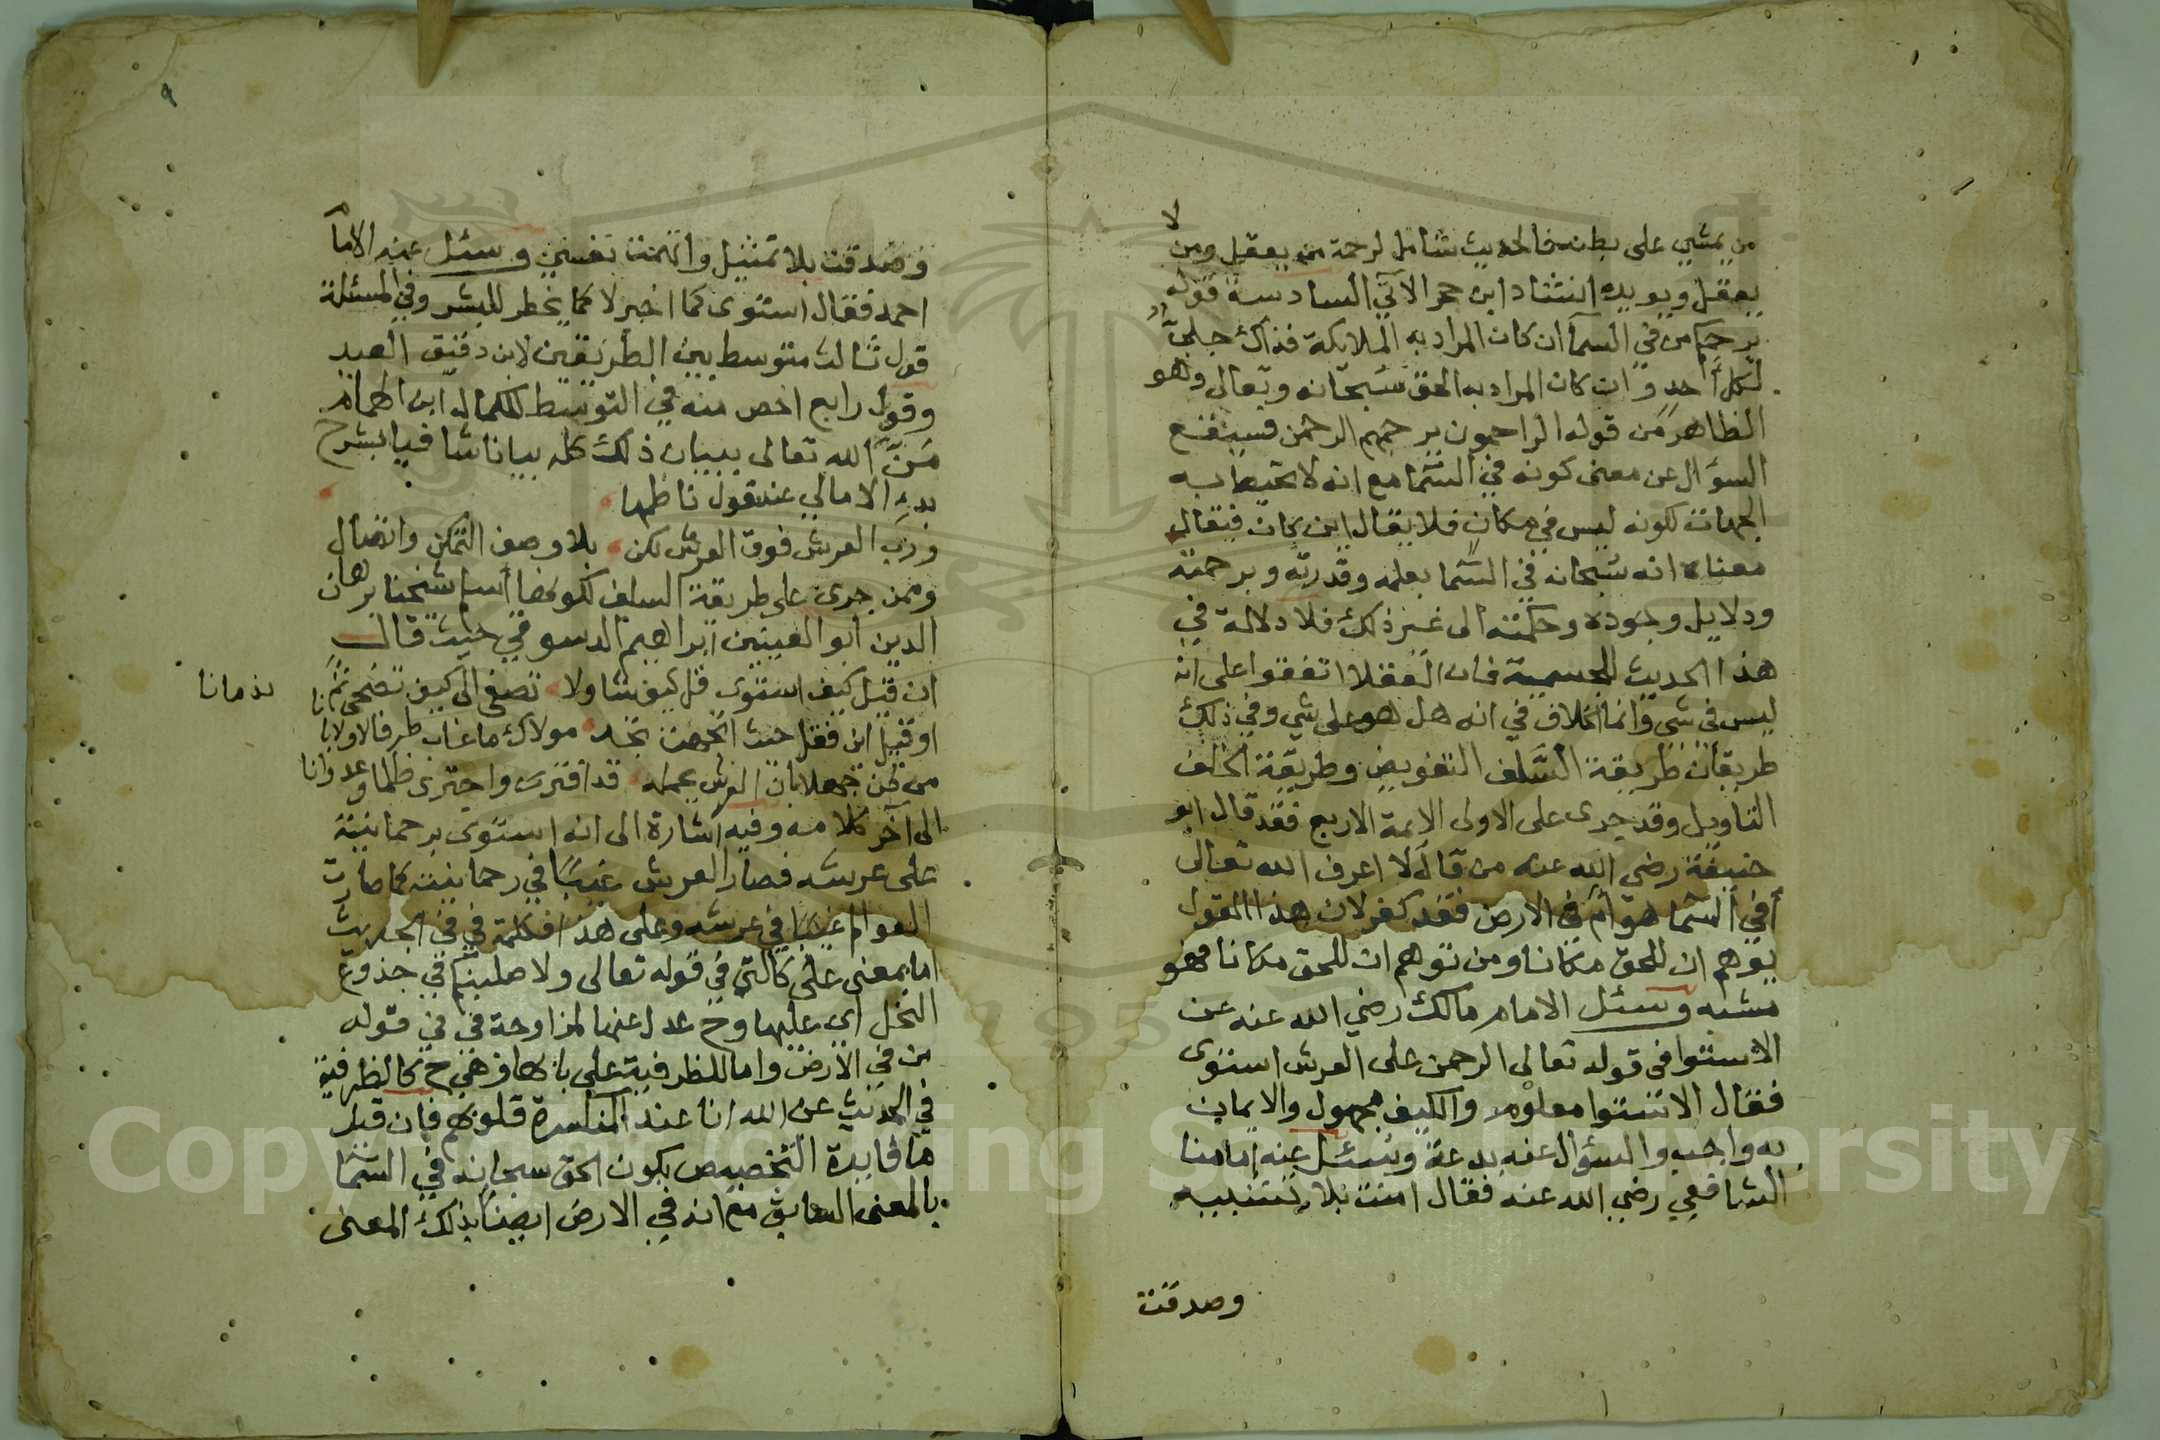 من يمشي على بطنه فالحديث شامل لرحمة من يعقل ومن لا
يعقل ويويده انشاد ابن حجر الآتي السادسة قوله
يرحمكم من في السمآ ان كان المراد به الملايكة فذاك جلي
لكل احد وان كان المراد به الحق سبحانه وتعالى وهو
الظاهر من قوله الراحمون يرحمهم الرحمن فسيقع
السؤال عن معنى كونه في السما مع انه لا تحيط به
الجهات لكونه ليس في مكان فلا يقال اين كان فيقال
معناه انه سبحانه في السما بعلمه وقدرته وبرحمته
ودلايل وجوده وحكمته الى غير ذلك فلا دلالة في
هذا الحديث للجسمية فان العقلا اتفقوا على انه
ليس في شي وانما الخلاف في انه هل هو على شي وفي ذلك
طريقان طريقة السلف التفويض وطريقة الخلف
التاويل وقد جرى على الاولى الايمة الاربع فقد قال ابو
حنيفة رضي الله عنه من قال لا اعرف الله تعالى
أفي السما هو أم في الارض فقد كفر لان هذا القول
يوهم ان للحق مكانا ومن توهم ان للحق مكانا فهو
مشبه وسئل الامام مالك رضي الله عنه عن
الاستوا في قوله تعالى الرحمن على العرش استوى
فقال الاستوا معلوم والكيف مجهول والايمان
به واجب والسؤال عنه بدعة وسئل عنه امامنا
الشافعي رضي الله عنه فقال امنت بلا تشبيه
وصدقت
٩
وصدقت بلا تمثيل واتهمت نفسي وسئل عنه الامام
احمد فقال استوى كما اخبر لا كما يخطر للبشر وفي المسئلة
قول ثالث متوسط بين الطريقين لابن دقيق العيد
وقول رابع اخص منه في التوسط للكمال ابن الهمام
مَنَّ الله تعالى ببيان ذلك كله بيانا شافيا بشرح
بدء الامالي عند قول ناظمها
ورب العرش فوق العرش لكن بلا وصف التمكن واتصال
وممن جرى على طريقة السلف شيخنا برهان
الدين ابو العينين ابراهيم الدسوقي حيث قال
ان قيل كيف استوى قل كيف شا ولا تصغى الى كيف تضحى
ندمانا
او قيل اين فقل حيث اتجهت تجد مولاك ما غاب طرفا لا ولا بانا
من ظن جهلا بان العرش يحمله قد افترى واجترى ظلما وعدوانا
الى آخر كلامه وفيه اشارة الى انه استوى برحمانيته
على عرشه فصار العرش غيبًا في رحمانيته كما صارت
العوالم غيبًا في عرشه وعلى هذا فكلمة في في الحديث
اما بمعنى على كالتي في قوله تعالى ولاصلبنكم في جذوع
النخل اي عليها وح عدل عنها لمزاوجة في في قوله
من في الارض واما للظرفية على بابها وهي ح كالظرفية
في الحديث عن الله انا عند المنكسرة قلوبهم فان قيل
ما فايدة التخصيص بكون الحق سبحانه في السما
بالمعنى السابق مع انه في الارض ايضا بذلك المعنى
Copyright King Saud University
1957